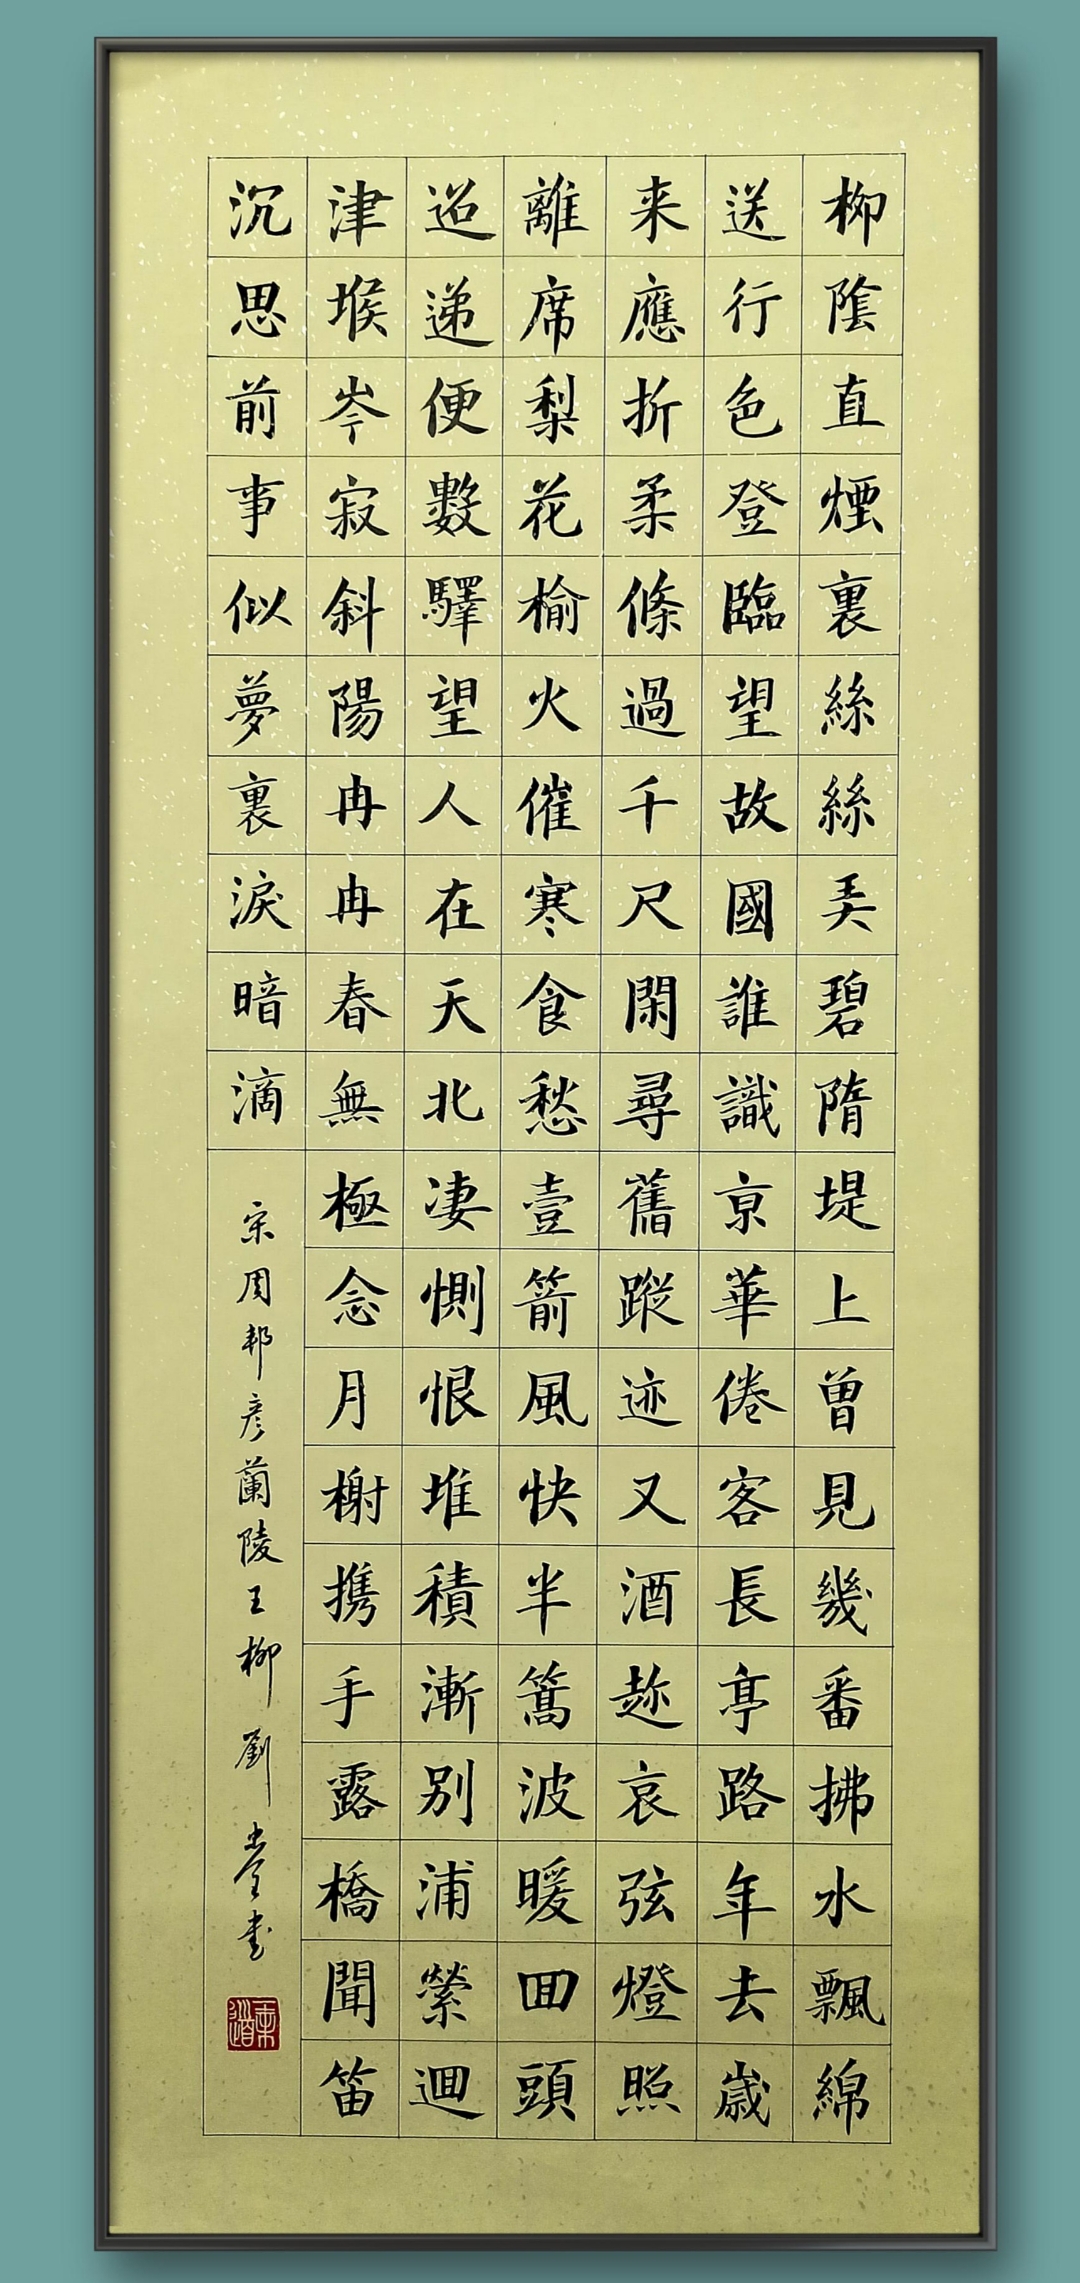 柳陰直煙裏絲絲弄碧隋堤上曾見幾番拂水飄綿
送行色登臨望故國誰識京華倦客長亭路年去歲
来應折柔條過千尺閑尋舊蹤迹又酒趂哀弦燈照
離席梨花榆火催寒食愁壹箭風快半篙波暖回頭
迢递便數驛望人在天北凄惻恨堆積漸別浦縈迴
津堠岑寂斜陽冉冉春無極念月榭携手露橋聞笛
沉思前事似夢裏淚暗滴
宋周邦彦蘭陵王柳劉書